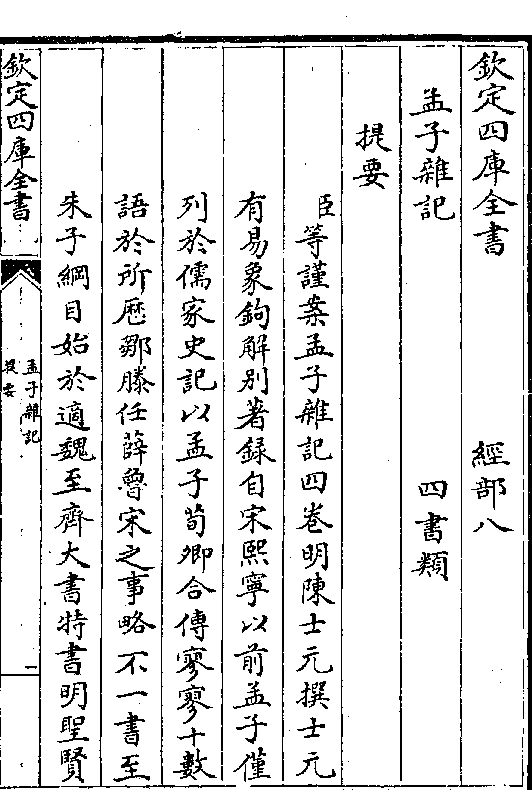 欽定四庫全書　　　經部八
孟子雜記　　　四書類
提要
臣等謹案孟子雜記四卷明陳士元撰士元
有易象鉤解別著録自宋熙寧以前孟子僅
列於儒家史記以孟子荀卿合傳寥寥十數
語於所歴鄒滕任薛魯宋之事略不一書至
朱子綱目始於適魏至齊大書特書明聖賢
欽定四庫全書
孟子雜記
提要
一